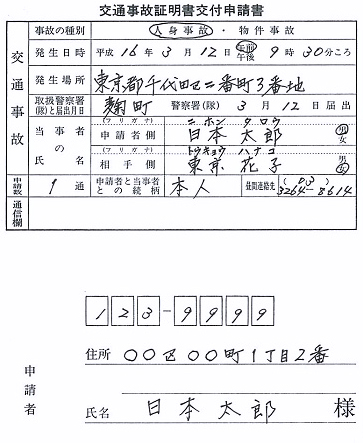 交通事故証明書交付申請書
事故の種別 人身事故・物件事故
発生日時 平成 16 年 3 月 12 日 午前 午後 9 時 30 分ころ
発生場所 東京都千代田区二番町3番地
取扱警察署(隊)と届出月日 麹町 警察署(隊) 3 月 12 日 届出
交通事故
当事者の氏名
(フリガナ) ニホン タロウ
申請者側 日本 太郎 男 女
(フリガナ) トウキョウ ハナコ
相手側 東京 花子 男 女
申請数 1 通 申請者と当事者との続柄 本人 昼間連絡先 (03) 3264-8614
通信欄
123-9999
申請者
住所 〇〇区〇〇町1丁目2番
氏名 日本太郎 様